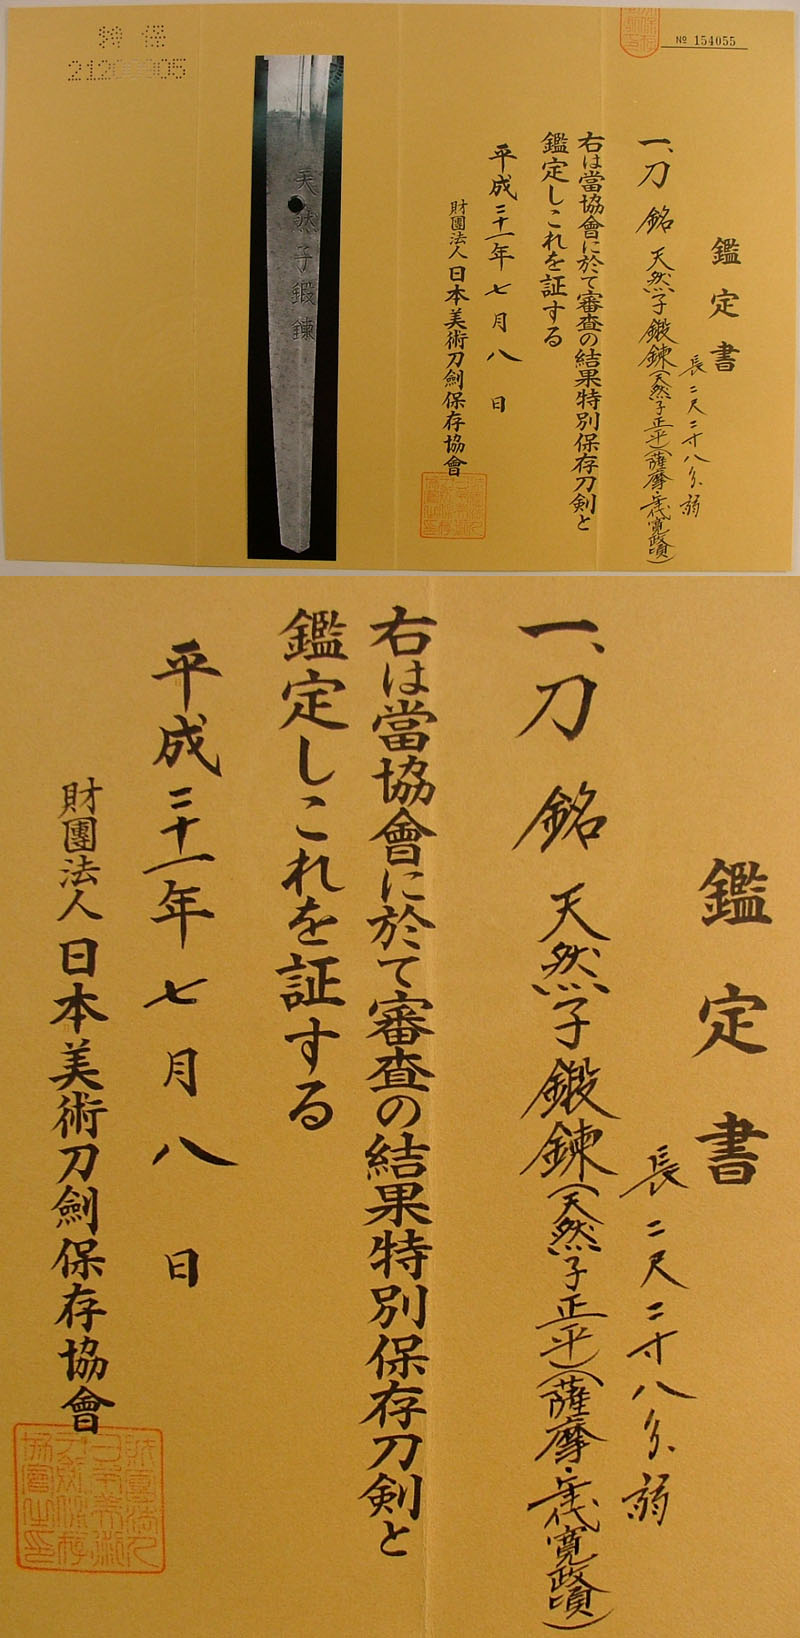 特保
No 154055
鑑定書
長二尺二寸八分弱
一、刀 銘 天然子鍛錬(天然子正平)(薩摩・年代寛政頃)
右は當協會に於て審査の結果特別保存刀剣と
鑑定しこれを証する
平成二十一年七月八日
財團法人日本美術刀劍保存協會
天然子鍛錬
鑑定書
長二尺二寸八分弱
一、刀 銘 天然子鍛錬(天然子正平)(薩摩・年代寛政頃)
右は當協會に於て審査の結果特別保存刀剣と
鑑定しこれを証する
平成二十一年七月八日
財團法人日本美術刀劍保存協會